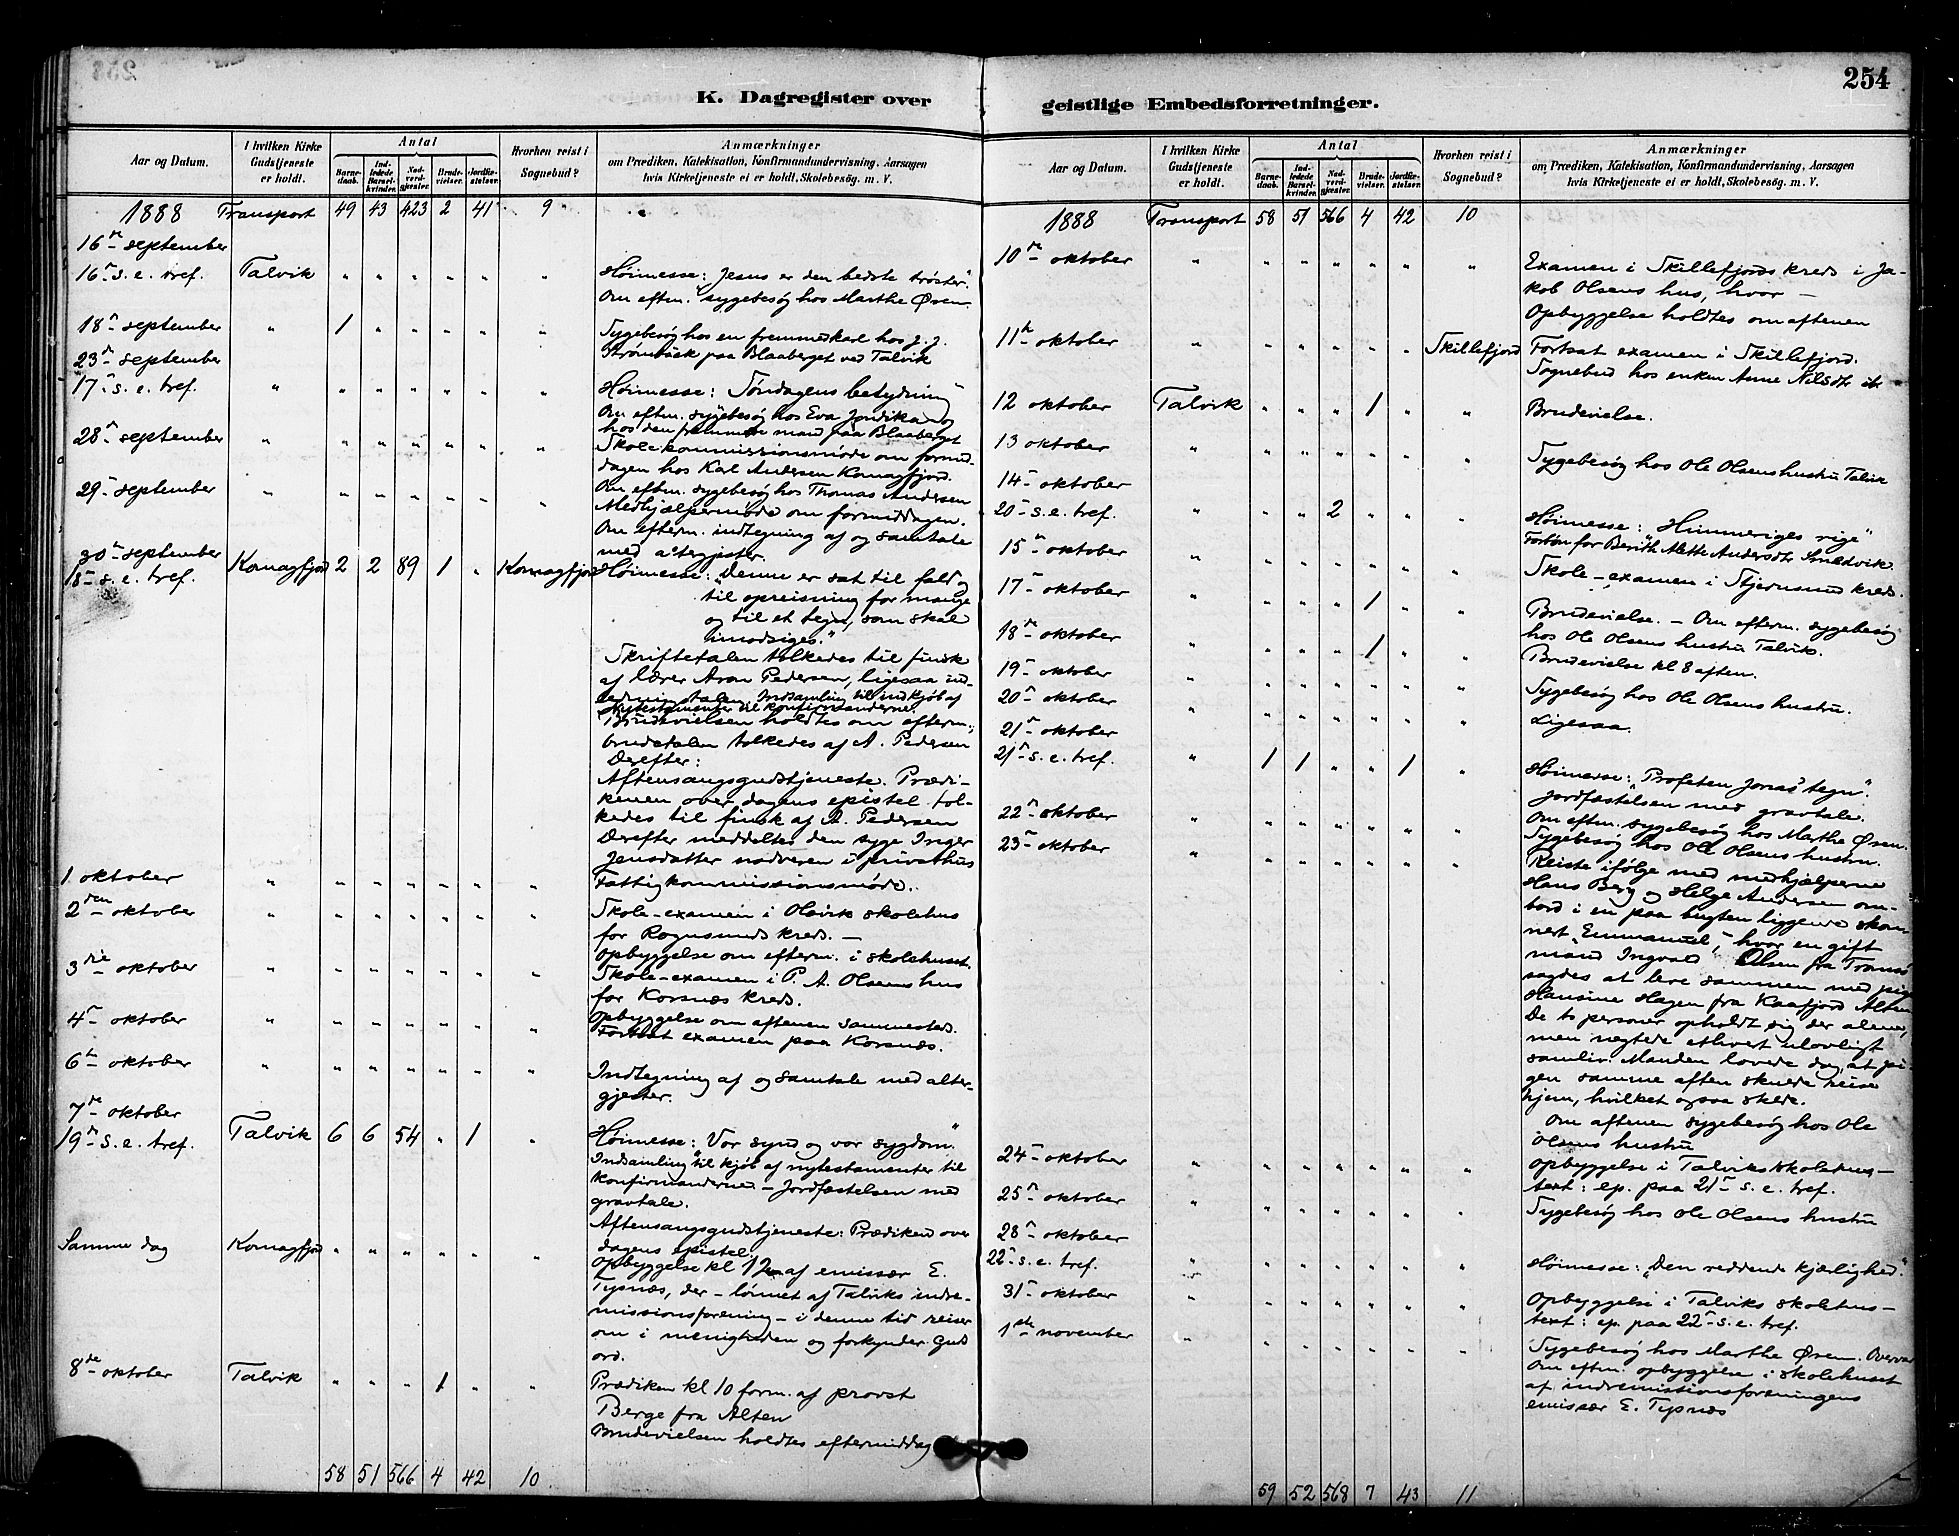 254
K. Dagregister over geistlige Embedsforretninger.
Aar og Datum.
I hvilken Kirke Gudstjeneste er holdt.
Antal
Barnedaab.
Indledede Barselkvinder.
Nadverdgjester.
Brudevielser.
Jordfæstelser.
Hvorhen reist i Sognebud?
Anmærkninger
om Prædiken, Katekisation, Konfirmandundervisning, Aarsagen
hvis Kirketjeneste ei er holdt, Skolebesøg. m. V.
1888 Transport 49 43 423 2 41 9
16de september
16de s. e. tref. Talvik " " " " " " Høimesse: "Jesus er den bedste trøster".
Om eftm. sygebesøg hos Marthe Øren.
18de september " 1 " " " " " Sygebesøg hos en fremmedkarl hos J. J.
Strømbæk paa Blaaberget ved Talvik
23de september
17de s. e. tref. " " " " " " " Høimesse: "Søndagens betydning"
Om eftm. sygebesøg hos Eva Jondika og
hos den fremmede mand paa Blaaberget
28de september " " " " " " " Skolekommissionsmøde om formid-
dagen hos Karl Andersen Komagfjord.
Om eftm. sygebesøg hos Thomas Andersen
29de september " " " " " " " Medhjælpermøde om formiddagen.
Om efterm. indtegning af og samtale
med altergjester.
30te september
18de s. e. tref. Komagfjord 2 2 89 1 " Komagfjord Høimesse: "Denne er sat til fald og
til opreisning for mange
og til et tegn, som skal
imodsiges."
Skriftetalen tolkedes til finsk
af lærer Aron Pedersen, ligesaa ind-
ledningstalen. Indsamling til indkjøb af
Nytestamenter til konfirmanderne.
Brudevielsen holdtes om efterm.;
brudetalen tolkedes af A. Pedersen
Derefter:
Aftensangsgudstjeneste. Prædi-
kenen over dagens epistel tol-
kedes til finsk af A. Pedersen
Derefter meddeltes den syge Inger
Jensdatter nadveren i privathus
1 oktober " " " " " " " Fattigkommissionsmøde.
2den oktober " " " " " " " Skole-examen i Olavik skolehus
for Rognsunds kreds. —
Opbyggelse om efterm. i skolehuset.
3die oktober " " " " " " " Skole-examen i P. A. Olsens hus
for Korsnæs kreds.
Opbyggelse om aftenen sammesteds.
4de oktober " " " " " " " Fortsat examen paa Korsnæs.
6te oktober " " " " " " " Indtegning af og samtale med alter-
gjester.
7de oktober
19de s. e. tref. Talvik 6 6 54 " 1 " Høimesse: "Vor synd og vor sygdom."
Indsamling til kjøb af nytestamenter til
konfirmanderne — Jordfæstelsen med
gravtale.
Samme dag Komagfjord " " " " " " Aftensangsgudstjeneste: Prædiken over
dagens epistel.
Opbyggelse kl 12 af emissær E.
Tysnæs, der — lønnet af Talviks indre-
missionsforening — i denne tid reiser
om i menigheden og forkynder Guds
ord.
8de oktober Talvik " " " 1 " " Prædiken kl 10 form. af provst
Berge fra Alten
Brudevielsen holdtes eftermiddag
58 51 566 4 42 10
Aar og Datum.
I hvilken Kirke Gudstjeneste er holdt.
Antal
Barnedaab.
Indledede Barselkvinder.
Nadverdgjester.
Brudevielser.
Jordfæstelser.
Hvorhen reist i Sognebud?
Anmærkninger
om Prædiken, Katekisation, Konfirmandundervisning, Aarsagen
hvis Kirketjeneste ei er holdt, Skolebesøg. m. V.
1888 Transport 58 51 566 4 42 10
10de oktober " " " " " " " Examen i Skillefjords kreds i Ja-
kob Olsens hus, hvor —
Opbyggelse holdtes om aftenen
11te oktober " " " " " " Skillefjord Fortsat examen i Skillefjord.
Sognebud hos enken Anne Nilsdtr
12 oktober Talvik " " " 1 " " Brudevielse.
13 oktober " " " " " " " Sygebesøg hos Ole Olsens hustru Talvik
14de oktober
20de s. e. tref. " " " 2 " " " Høimesse: "Himmeriges rige"
Forbøn for Berith Mette Andersdtr
15de oktober " " " " " " " Skole-examen i Stjernsund kreds.
17de oktober " " " " 1 " " Brudevielse. — Om efterm. sygebesøg
hos Ole Olsens hustru Talvik.
18de oktober " " " " 1 " " Brudevielse kl 8 aften.
19de oktober " " " " " " " Sygebesøg hos Ole Olsens hustru.
20de oktober " " " " " " " Ligesaa.
21de oktober
21de s. e. tref. " 1 1 " " 1 " Høimesse: "Profeten Jonas' tegn".
Jordfæstelsen med gravtale.
Om eftm. sygebesøg hos Marthe Øren.
22de oktober " " " " " " " Sygebesøg hos Ole Olsens hustru.
23de oktober " " " " " " " Reiste ifølge med medhjælperne
Hans Berg og Helge Andersen om-
bord i en paa bugten liggende skon-
nert "Emmanuel", hvor en gift
mand Ingvald Olsen fra Tromsø
sagdes at leve sammen med pige
Hansine Hagen fra Kaafjord Alten
De to personer opholdt sig der alene,
men negtede ethvert ulovligt
samliv. Manden lovede dog, at pi-
gen samme aften skulde reise
hjem, hvilket ogsaa skede.
Om aftenen sygebesøg hos Ole
Olsens hustru
24de oktober " " " " " " " Opbyggelse i Talviks skolehus —
text: ep. paa 21de s. e. tref.
25de oktober " " " " " " " Sygebesøg hos Ole Olsens hustru
28de oktober
22de s. e. tref. " " " " " " " Høimesse: "Den reddende kjærlighed."
31te oktober " " " " " " " Opbyggelse i Talviks skolehus —
text: ep. paa 22de s. e. tref.
1ste november " " " " " " " Sygebesøg hos Marthe Øren. Overvar
Om eftm. opbyggelse i skolehuset
af indremissionsforeningens
emissær E. Tysnæs
59 52 568 7 43 11